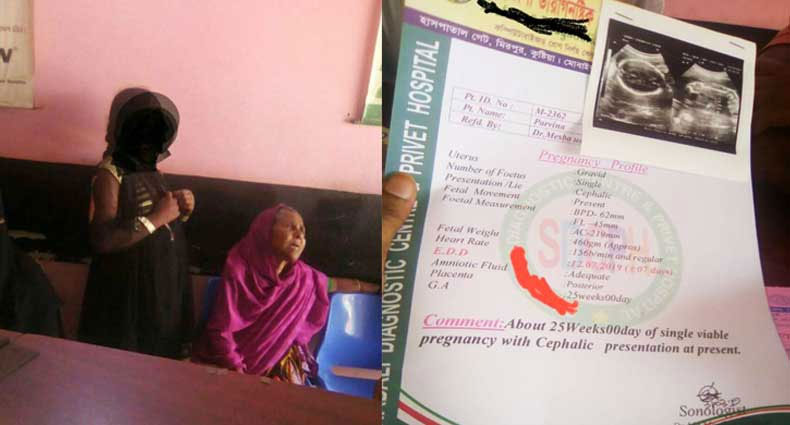 হাসপাতাল গেট, মিরপুর, কুষ্টিয়া। মোবাইল
DIAGNOSTIC CENTRE & PRIVET HOSPITAL
Pt. ID. No : M-2362
Pt. Name: Parvina
Refd. By: Dr.Mesba u
Pregnancy Profile
Uterus :Gravid
Number of Foetus :Single
Presentation /Lie :Cephalic
Fetal Movement :Present
Foetal Measurement :BPD- 62mm
FL -45mm
AC-219mm
Fetal Weight :460gm (Approx)
Heart Rate :156b/min and regular
E.D.D :12.07/2019 (±07 days)
Amniotic Fluid :Adequate
Placenta :Posterior
G.A :25weeks00day
Comment:About 25Weeks00day of single viable
pregnancy with Cephalic presentation at present.
Sonologist